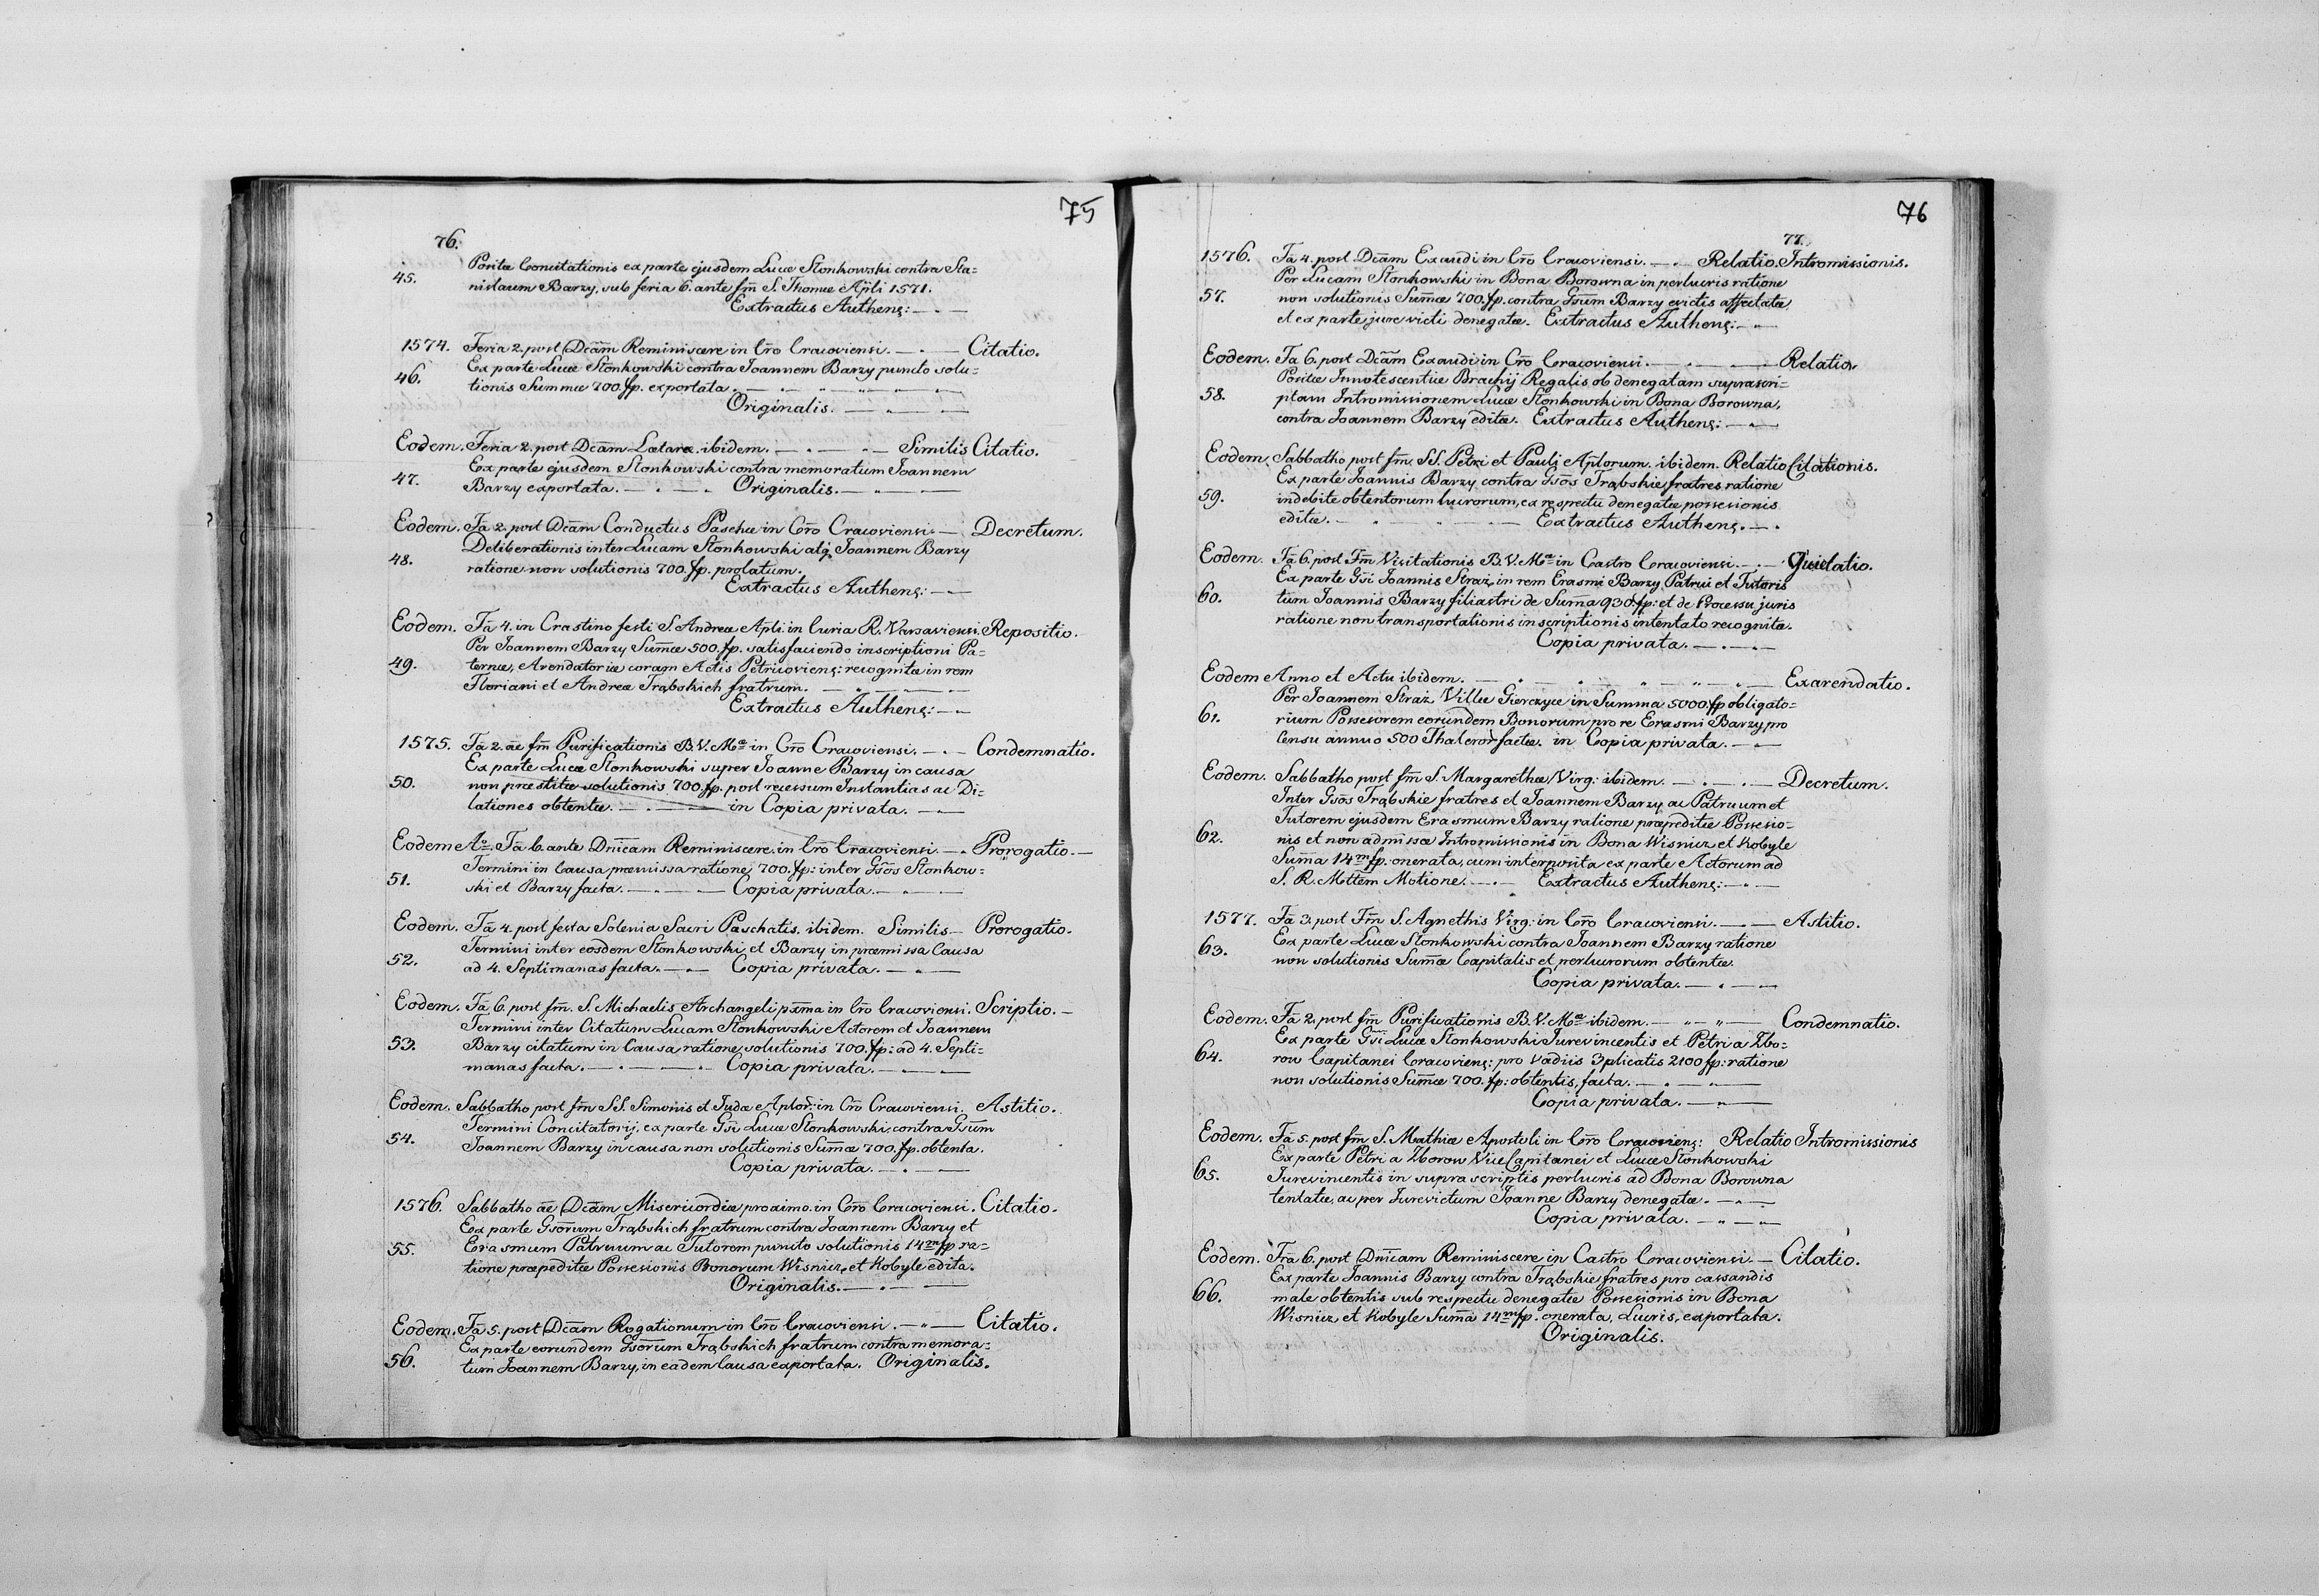 75
76.
Positæ Concitationis ex parte ejusdem Lucæ Słonkowski contra Sta=
45. nislaum Barzy, sub feria 6. ante fm̄ S. Thomæ Apli 1571.
Extractus Authenς: —.—
1574. Feria 2. post Dcām Reminiscere in Cr̄o Cracoviensi. —.— Citatio.
Ex parte Lucæ Słonkowski contra Joannem Barzy puncto solu=
46. tionis Summæ 700. fp. exportata. —
Originalis. —
Eodem. Feria 2. post Dcām Lætare. ibidem. —.— Similis Citatio.
Ex parte ejusdem Słonkowski contra memoratum Joannem
47. Barzy exportata. —.— Originalis. —
Eodem. Fā 2. post Dcām Conductus Paschæ in Cr̄o Cracoviensi. — Decretum.
Deliberationis inter Lucam Słonkowski atq̄ Joannem Barzy
48. ratione non solutionis 700. fp. prolatum.
Extractus Authenς: —
Eodem. Fā 4. in Crastino festi S. Andreæ Apli in Curia R. Varsaviensi. Repositio.
Per Joannem Barzy Sum̄æ 500. fp. satisfaciendo inscriptioni Pa=
49. ternæ, Arendatoriæ coram Actis Petricovienς: recognitæ in rem
Floriani et Andreæ Trąbskich fratrum. —
Extractus Authenς: —
1575. Fā 2. āe fm̄ Purificationis B. V. Mæ in Cr̄o Cracoviensi. —.— Condemnatio.
Ex parte Lucæ Słonkowski super Joanne Barzy in causa
50. non præstitæ solutionis 700. fp. post recessum Instantias ac Di=
lationes obtentæ. —.— in Copia privata. —
Eodem Ao. Fā 6. ante Dnīcam Reminiscere. in Cr̄o Cracoviensi. —. Prorogatio. —
Termini in Causa præmissa ratione 700. fp: inter Gsōs Słonkow=
51. ski et Barzy facta. —.— Copia privata. —
Eodem. Fā 4. post festa Solenia Sacri Paschatis. ibidem. Similis — Prorogatio.
Termini inter eosdem Słonkowski et Barzy in præmissa Causa
52. ad 4. Septimanas facta. —.— Copia privata. —
Eodem. Fā 6. post fm̄. S. Michaelis Archangeli px̄ma in Cr̄o Cracoviensi. Scriptio. —
Termini inter Citatum Lucam Słonkowski Actorem et Joannem
53. Barzy citatum in Causa ratione solutionis 700. fp: ad 4. Septi=
manas facta. —.— Copia privata. —
Eodem. Sabbatho post fm̄ SS. Simonis et Judæ Aplor̄: in Cr̄o Cracoviensi. Astitio.
Termini Concitatorij. ex parte Gsi Lucæ Słonkowski, contra Gsum
54. Joannem Barzy in causa non solutionis Sum̄æ 700. fp. obtenta.
Copia privata. —.—
1576. Sabbatho āe Dcām Misericordiæ, proximo. in Cr̄o Cracoviensi. Citatio.
Ex parte Gsōrum Trąbskich fratrum contra Joannem Barzy et
55. Erasmum Patruum ac Tutorem puncto solutionis 14m fp ra=
tione præpeditæ Possesionis Bonorum Wisnicz, et Kobyle edita.
Originalis. —.—
Eodem. Fā 5. post Dcām Rogationum in Cr̄o Cracoviensi. —.— Citatio.
Ex parte eorundem Gsōrum Trąbskich fratrum contra memora=
56. tum Joannem Barzy, in eadem Causa exportata. Originalis.
76
77.
1576. Fā 4. post Dcām Exaudi in Cr̄o Cracoviensi. —.— Relatio. Intromissionis.
Per Lucam Słonkowski in Bona Borowna in perlucris ratione
57. non solutionis Sum̄æ 700. fp. contra Gsum Barzy evictis affectatæ
et ex parte jure victi denegatæ. Extractus Authenς: —
Eodem. Fā 6. post Dcām Exaudi in Cr̄o Cracoviensi. —.— Relatio.
Positæ Innotescentiæ Brachij Regalis ob denegatam suprascri=
58. ptam Intromissionem Lucæ Słonkowski in Bona Borowna,
contra Joannem Barzy editæ. Extractus Authenς: —
Eodem. Sabbatho post fm̄. SS. Petri et Pauli Aplorum. ibidem. Relatio Citationis.
Ex parte Joannis Barzy contra Gsōs Trąbskie fratres ratione
59. indebite obtentorum lucrorum, ex respectu denegatæ possesionis
editæ. — Extractus Authenς. —.
Eodem. Fā 6. post Fm̄ Visitationis B. V. Mæ in Castro Cracoviensi. —.— Quietatio.
Ex parte Gsi Joannis Straż, in rem Erasmi Barzy Patrui et Tutoris
60. tum Joannis Barzy filiastri de Sum̄a 930. fp: et de Processu juris
ratione non transportationis inscriptionis intentato recognita.
Copia privata. —.—
Eodem Anno et Actu ibidem. — Exarendatio.
Per Joannem Straż Villæ Gierczyce in Summa 5000. fp obligato=
61. rium Possesorem eorundem Bonorum pro re Erasmi Barzy pro
Censu annuo 500 Thaleror̄ factæ. in Copia privata. —
Eodem. Sabbatho post fm̄ S. Margarethæ Virg: ibidem. —.— Decretum.
Inter Gsōs Trąbskie fratres et Joannem Barzy, ac Patruum et
Tutorem ejusdem Erasmum Barzy ratione præpeditæ Possesio=
62. nis et non admissæ Intromissionis in Bona Wisnicz, et Kobyle
Sum̄a 14m fp: onerata, cum interposita ex parte Actorum ad
S. R. Mttem Motione. —.— Extractus Authenς: —.—
1577. Fā 3. post Fm̄ S. Agnethis Virg: in Cr̄o Cracoviensi. —.— Astitio.
Ex parte Lucæ Słonkowski contra Joannem Barzy ratione
63. non solutionis Sum̄æ Capitalis et perlucrorum obtentæ.
Copia privata. —.—
Eodem. Fā 2. post fm̄ Purificationis B. V. Mæ ibidem. — Condemnatio.
Ex parte Gsi Lucæ Słonkowski Jurevincentis et Petri a Zbo=
64. row Capitanei Cracovienς: pro vadiis 3plicatis 2100 fp: ratione
non solutionis Sum̄æ 700. fp: obtentis, facta. —
Copia privata. —
Eodem. Fā 5. post fm̄ S. Mathiæ Apostoli in Cr̄o Cracovienς: Relatio Intromissionis
Ex parte Petri a Zborow ViceCapitanei et Lucæ Słonkowski
65. Jurevincentis in suprascriptis perlucris ad Bona Borowna
tentatæ, ac per Jurevictum Joanne Barzy denegatæ. —
Copia privata. —
Eodem. Fra 6. post Dnīcam Reminiscere in Castro Cracoviensi. — Citatio.
Ex parte Joannis Barzy contra Trąbskie fratres pro cassandis
66. male obtentis sub respectu denegatæ Possesionis in Bona
Wisnicz et Kobyle Sum̄a 14m fp. onerata, Lucris, exportata.
Originalis.